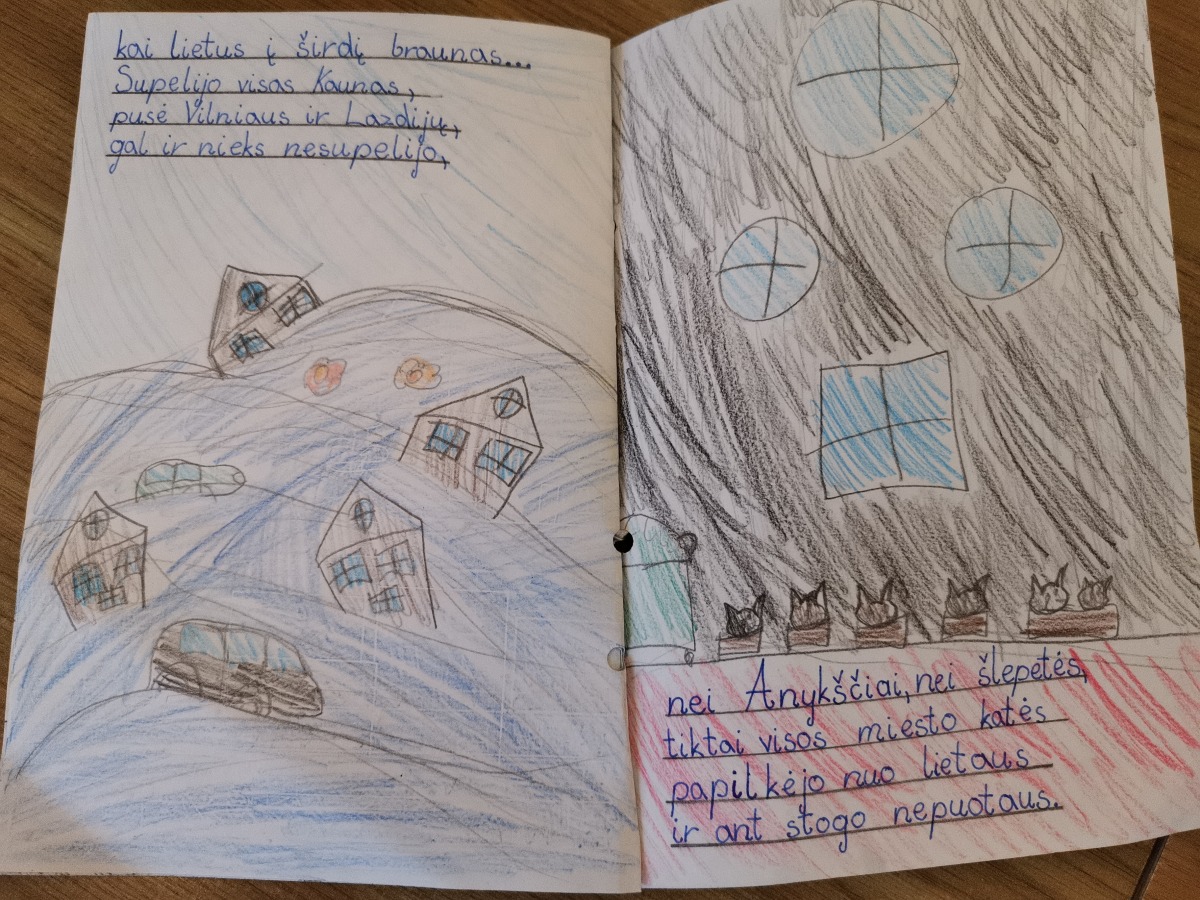 kai lietus į širdį braunas...
Supelijo visas Kaunas,
pusė Vilniaus ir Lazdijų,
gal ir nieks nesupelijo,
nei Anykščiai, nei šlepetės,
tiktai visos miesto katės
papilkėjo nuo lietaus
ir ant stogo nepuotaus.